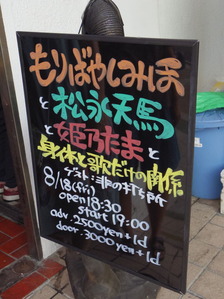 もりばやしみほ
と松永天馬
と姫乃たまと
身体と歌だけの関係
8/18(fri) ゲスト:非の打ち所
open 18:30
start 19:00
adv: 2500yen+1d
door: 3000yen+1d